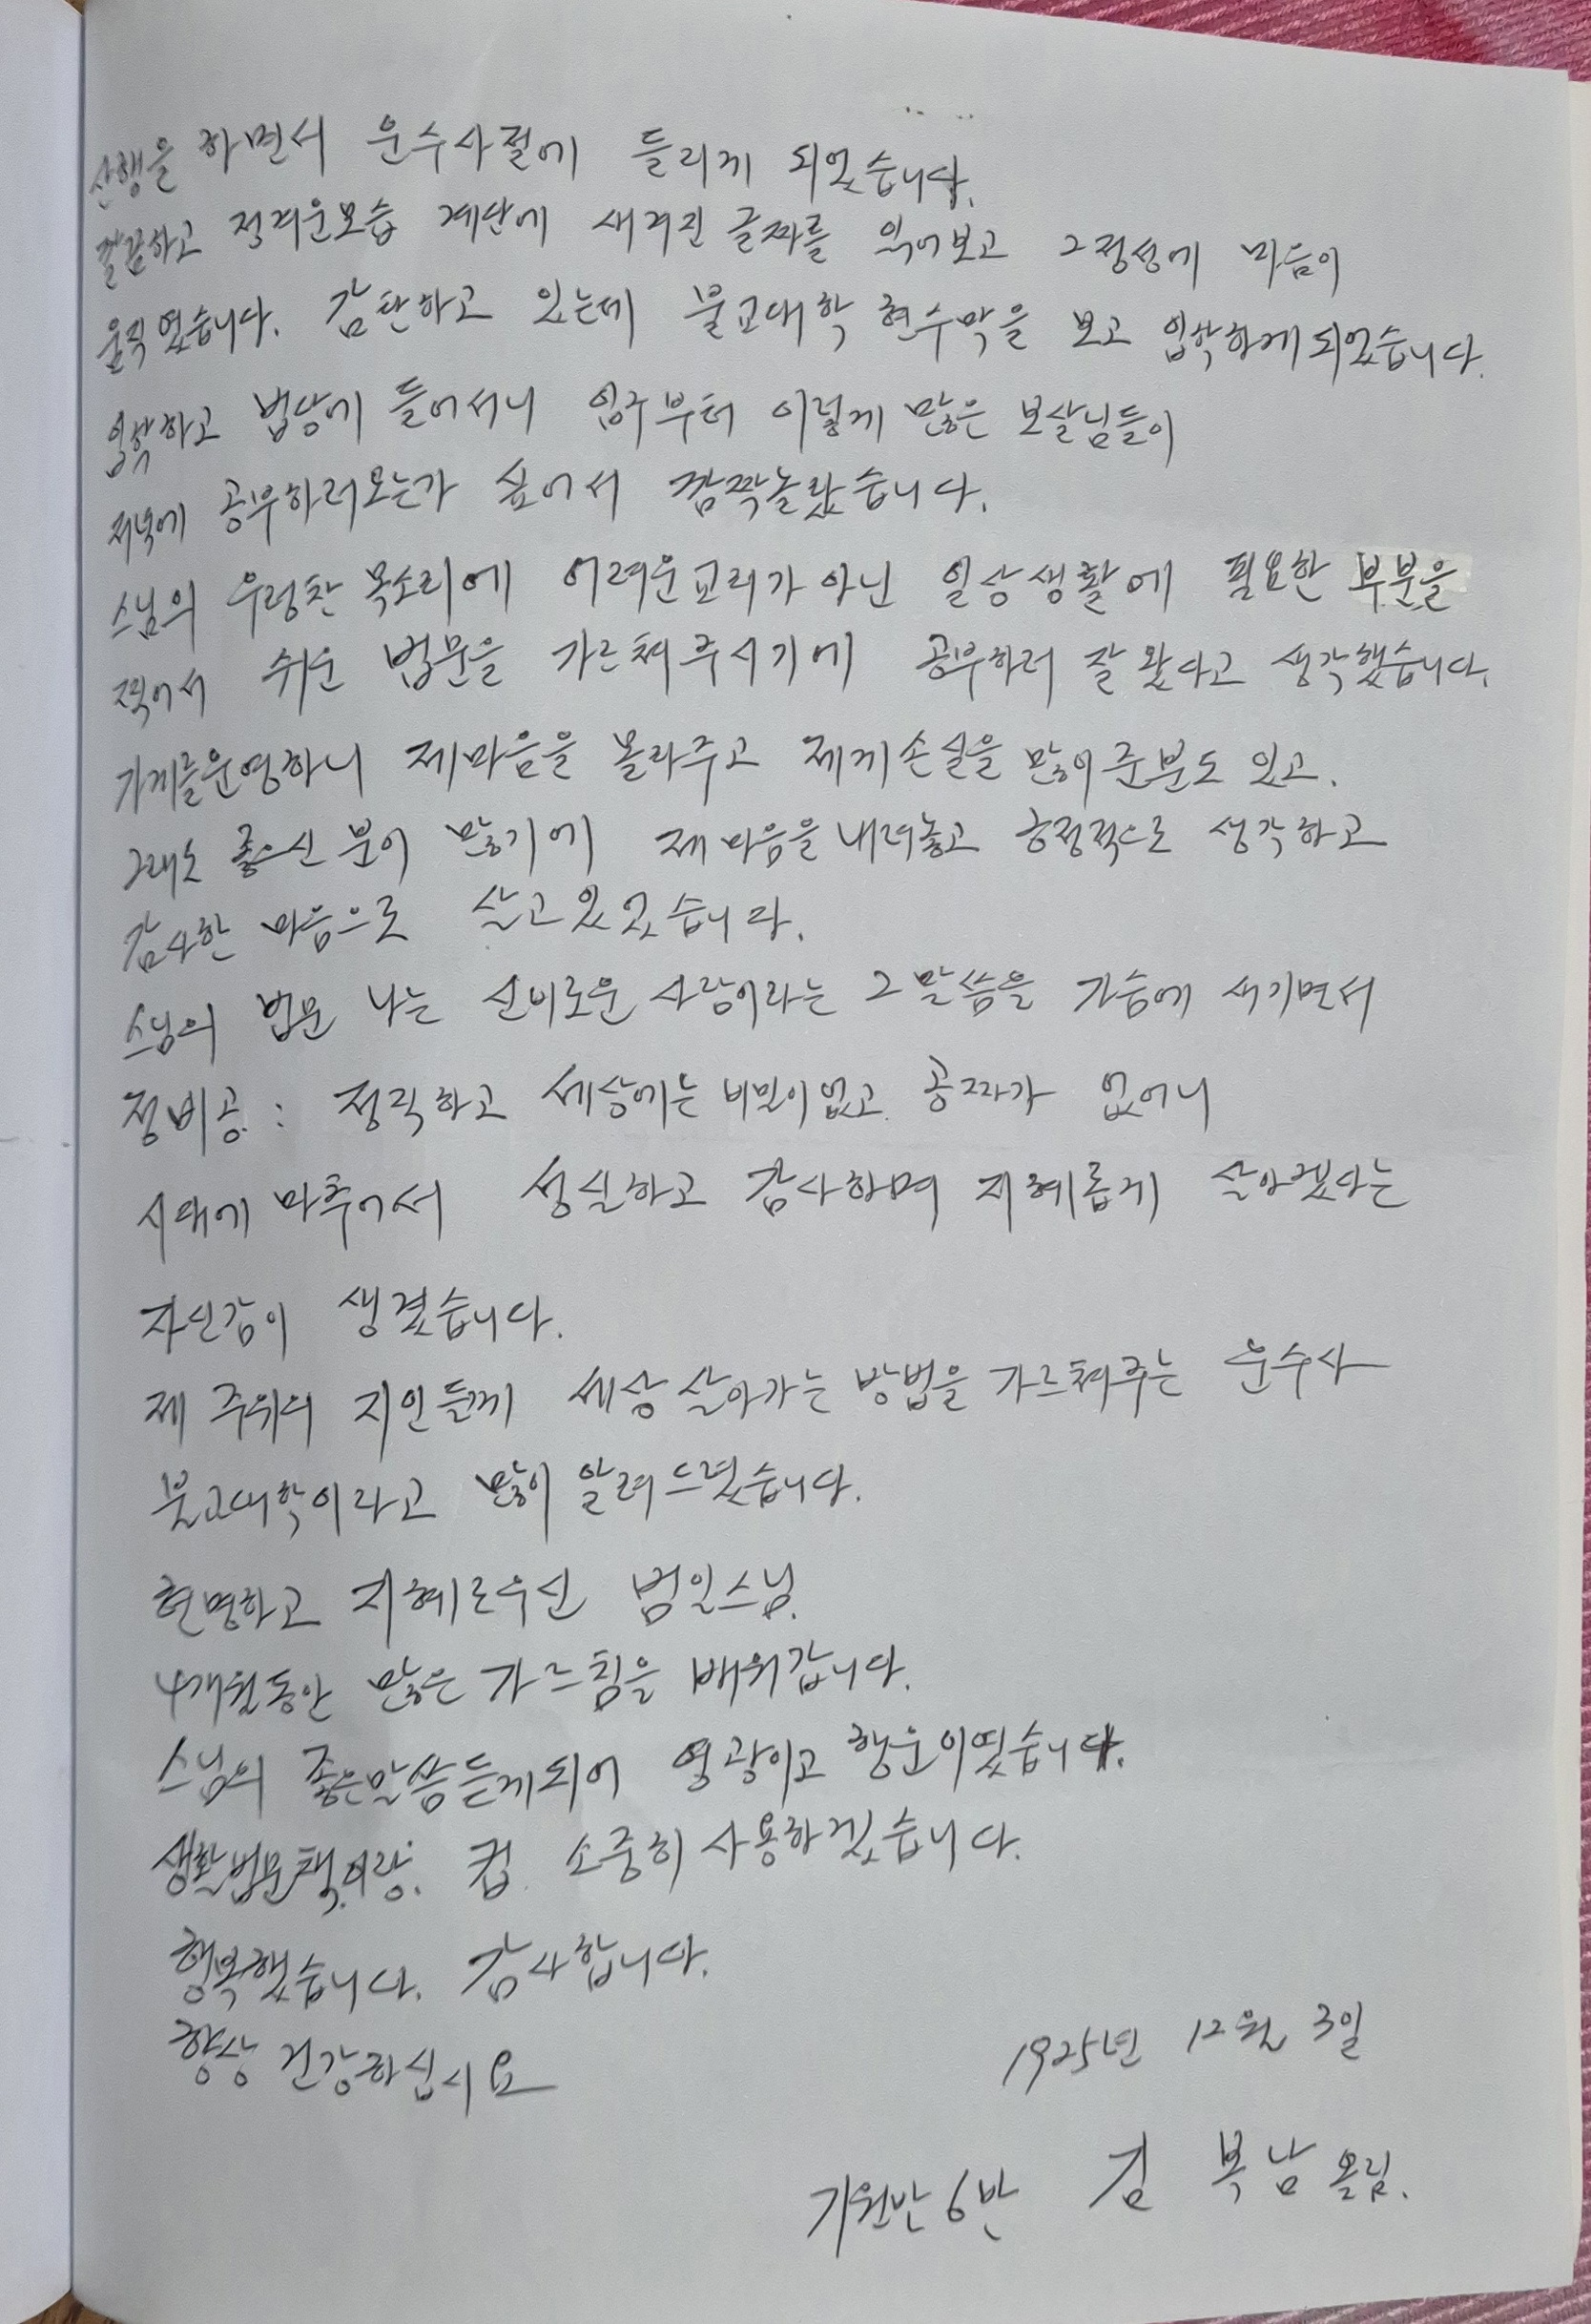 산행을 하면서 운수사절에 들리게 되었습니다.
깔끔하고 정겨운모습 계단에 새겨진 글짜를 읽어보고 그정성에 마음이
움직였습니다. 감탄하고 있는데 불교대학 현수막을 보고 입학하게되었습니다.
입학하고 법당에 들어서니 입구부터 이렇게 많은 보살님들이
저녁에 공부하러오는가 싶어서 깜짝놀랐습니다.
스님의 우렁찬 목소리에 어려운교리가 아닌 일상생활에 필요한 부분을
찍어서 쉬운 법문을 가르쳐주시기에 공부하러 잘 왔다고 생각했습니다.
가게를운영하니 제마음을 몰라주고 제게손실을 많이준분도 있고.
그래도 좋으신 분이 많기에 제마음을내려놓고 긍정적으로 생각하고
감사한 마음으로 살고있었습니다.
스님의 법문 나는 신비로운 사람이라는 그말씀을 가슴에 새기면서
정비공 : 정직하고 세상에는 비밀이없고 공짜가 없어니
시대에 마추어서 성실하고 감사하며 지혜롭게 살아겠다는
자신감이 생겼습니다.
제 주위의 지인들께 세상살아가는 방법을 가르쳐주는 운수사
불교대학이라고 많이 알려드렸습니다.
현명하고 지혜로우신 범일스님.
4개월동안 많은 가르침을 배워갑니다.
스님의 좋은말씀듣게되어 영광이고 행운이였습니다.
생활법문책이랑. 컵 소중히 사용하겠습니다.
행복했습니다. 감사합니다.
항상 건강하십시요
1925년 12월 3일
기원반 6반 김 복 남 올림.